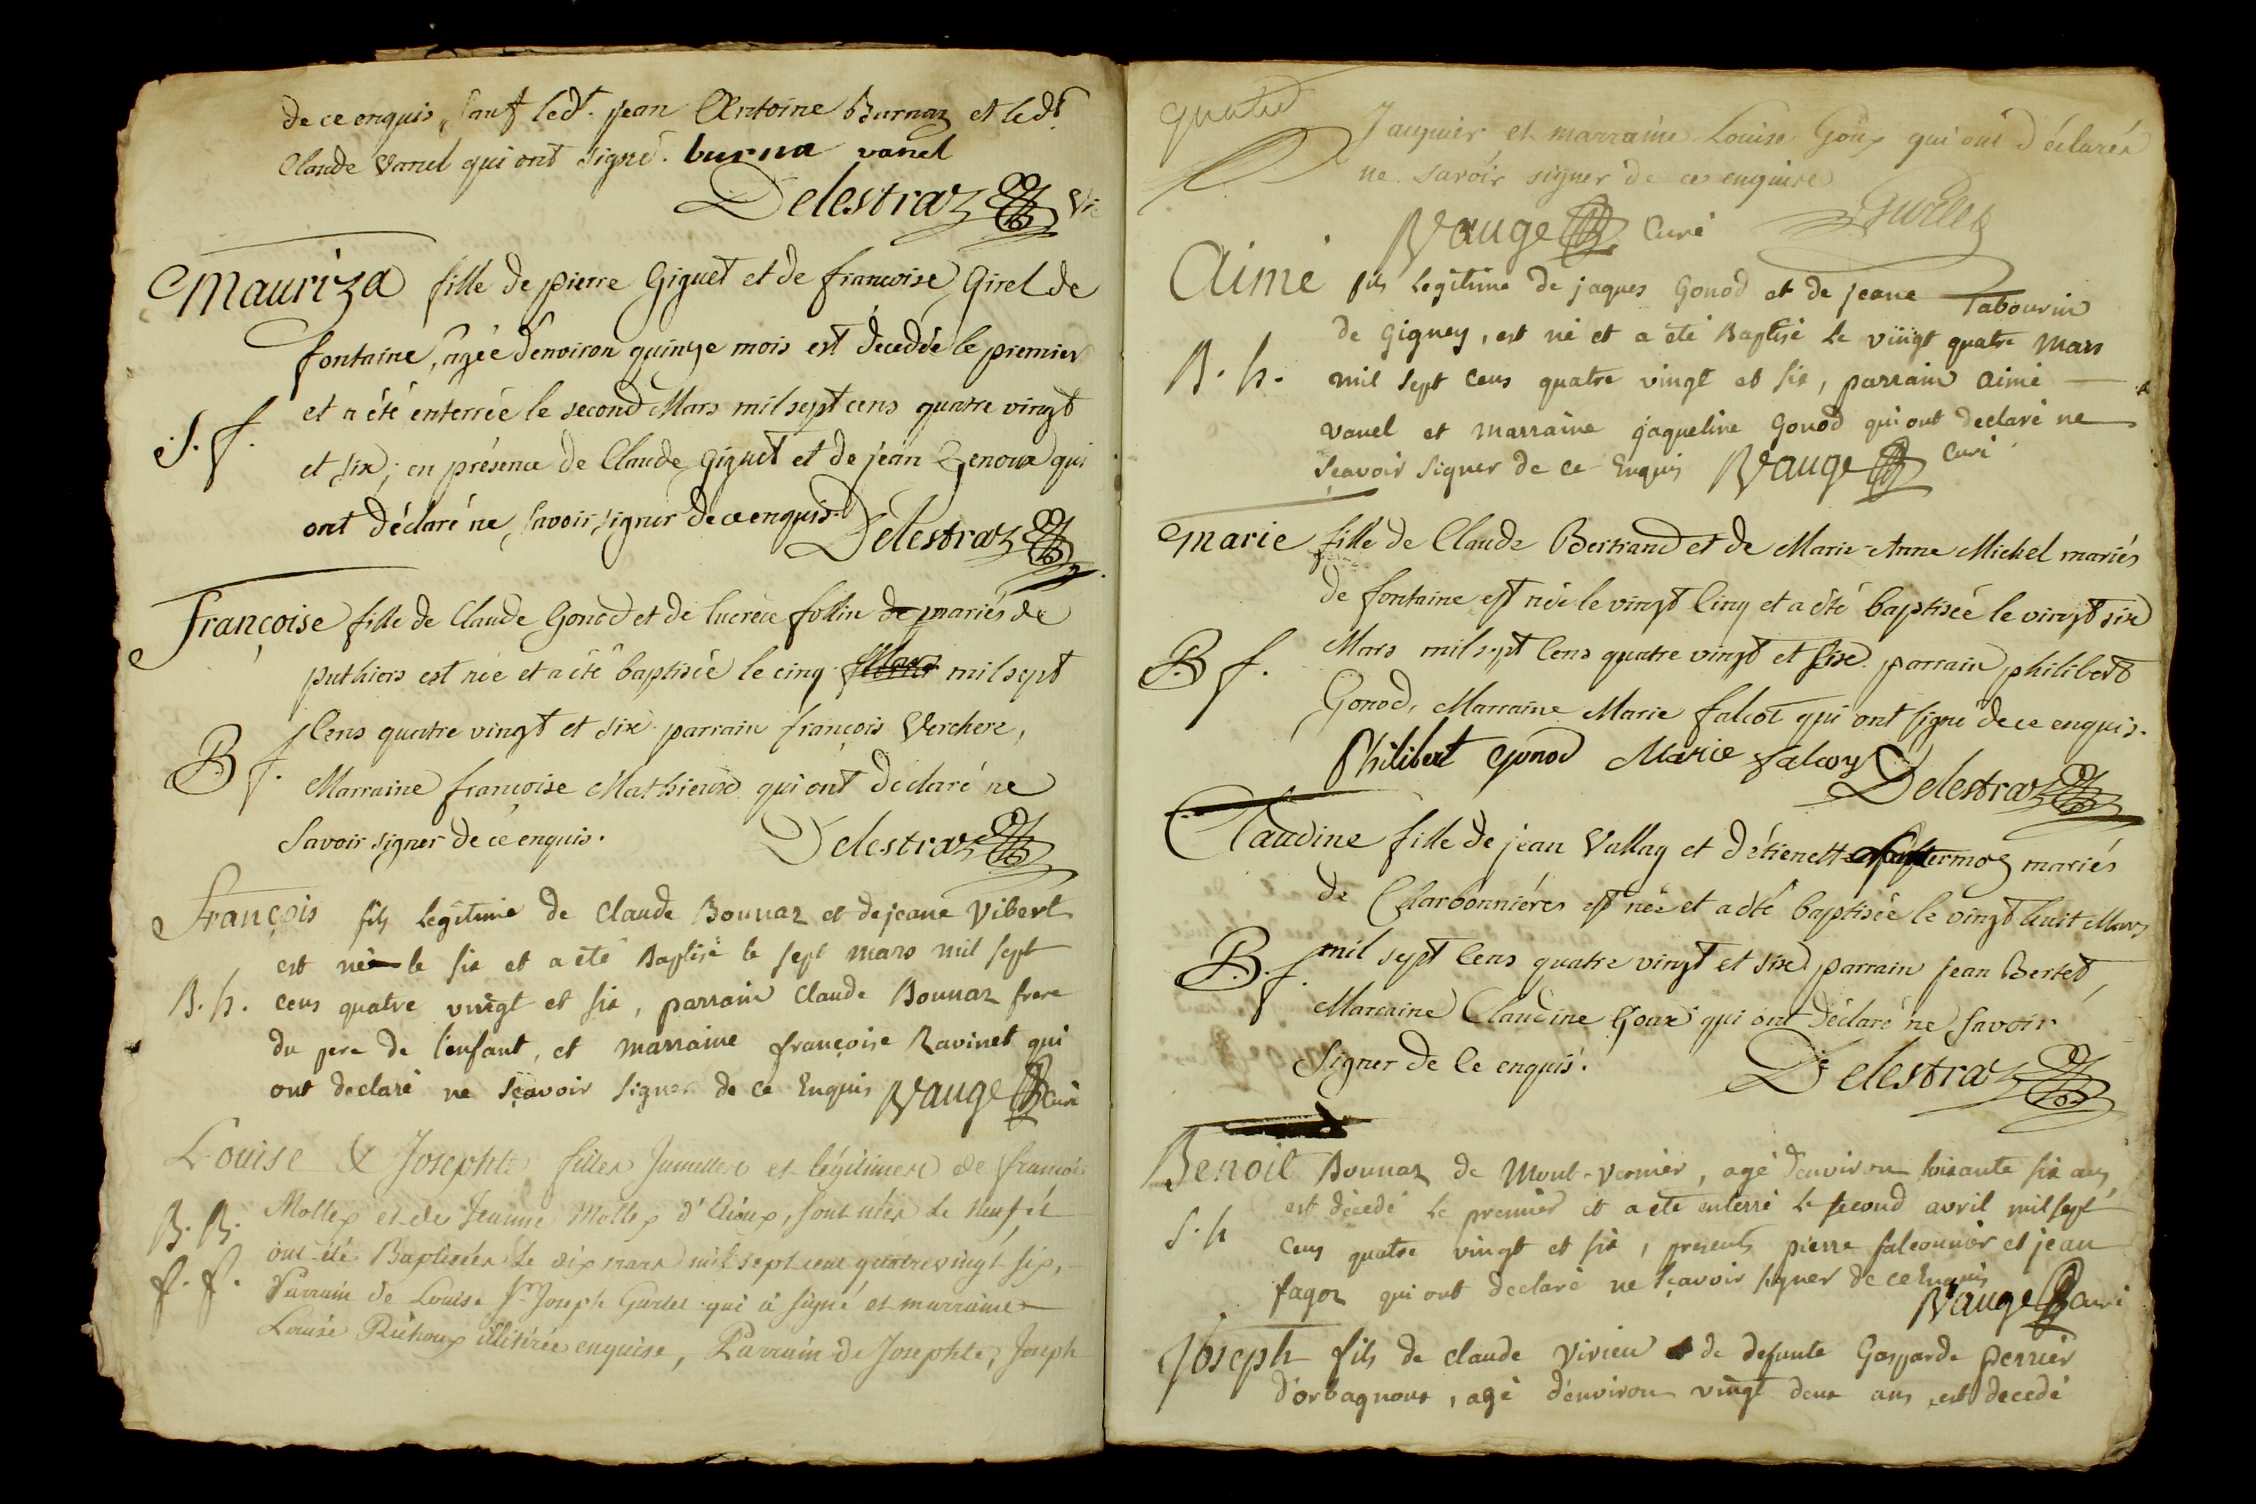 de ce enquis, sauf led.t jean Antoine Burnaz et led.t
Claude Vanel qui ont signé. burna vanel
Delestraz Vic
Mauriza fille de pierre Giguet et de francoise Girel de
fontaine, agée d'environ quinze mois est décedée le premier
et a été enterrée le second Mars mil sept cens quatre vingt
S. f.
et six; en présence de Claude Giguet et de jean Genoux qui
ont déclaré ne savoir signer de ce enquis. Delestraz
Françoise fille de Claude Gonod et de lucrèce follin de mariés de
puthiers est née et a été baptisée le cinq Mars mil sept
Cens quatre vingt et six parrain françois Verchere,
B f.
Marraine françoise Mathieux qui ont déclaré ne
Savoir signer de ce enquis. Delestraz
François fils legitime de Claude Bonnaz et de jeane Vibert
est né le six et a eté Baptisé le sept mars mil sept
B. h. cens quatre vingt et six, parrain Claude Bonnaz frere
du pere de l'enfant, et marraine françoise Ravinet qui
ont declaré ne sçavoir signer de ce Enquis Vauge Curé
Louise & Josephte filles Jumelles et légitimes de françois
B. B. Mollex et de Jeanne Mollex d' , sont nées le neuf et
ont été Baptisées le dix mars mil sept cent quatre vingt six,
f. f. Parrain de Louise Sr Joseph Gurlet qui a signé et marraine
Louise Richoux illitérée enquise, Parrain de Josephte, Joseph
Jaquier et marraine Louise Goux qui ont déclarés
ne savoir signer de ce enquire
Vauge Curé Gurlet
Aimé fils legitime de jaques Gonod et de jeane Tabourin
de Gigney, est né et a eté Baptisé le vingt quatre mars
B. h. mil sept cens quatre vingt et six, parrain aimé
vanel et marraine jaqueline Gonod qui ont declaré ne
sçavoir signer de ce Enquis Vauge Curé
Marie fille de Claude Bertrand et de Marie-Anne Michel mariés
de fontaine est née le vingt Cinq et a été baptisée le vingt six
B f. Mars mil sept Cens quatre vingt et six parrain philibert
Gonod, Marraine Marie falcoz qui ont signé de ce enquis.
Philibert Gonod Marie falcoz Delestraz
Claudine fille de jean Vallay et d'étienette mariés
de Charbonniéres est née et a été baptisée le vingt huit Mars
B. f. mil sept Cens quatre vingt et six parrain jean Bertet,
Marraine Claudine Goux qui ont déclaré ne savoir
Signer de Ce enquis. Delestraz
Benoit Bounaz de Mont-vernier, agé denviron soixante six ans,
est décedé le premier et a eté enterré le second avril mil sept
S. h cens quatre vingt et six, presents pierre falconnier et jean
fagoz qui ont declaré ne sçavoir signer de ce Enquis
Vauge Curé
Joseph fils de claude Vivieu et de defunte Gasparde perrier
d'orbagnoux, agé d'environ vingt deux ans, est decedé